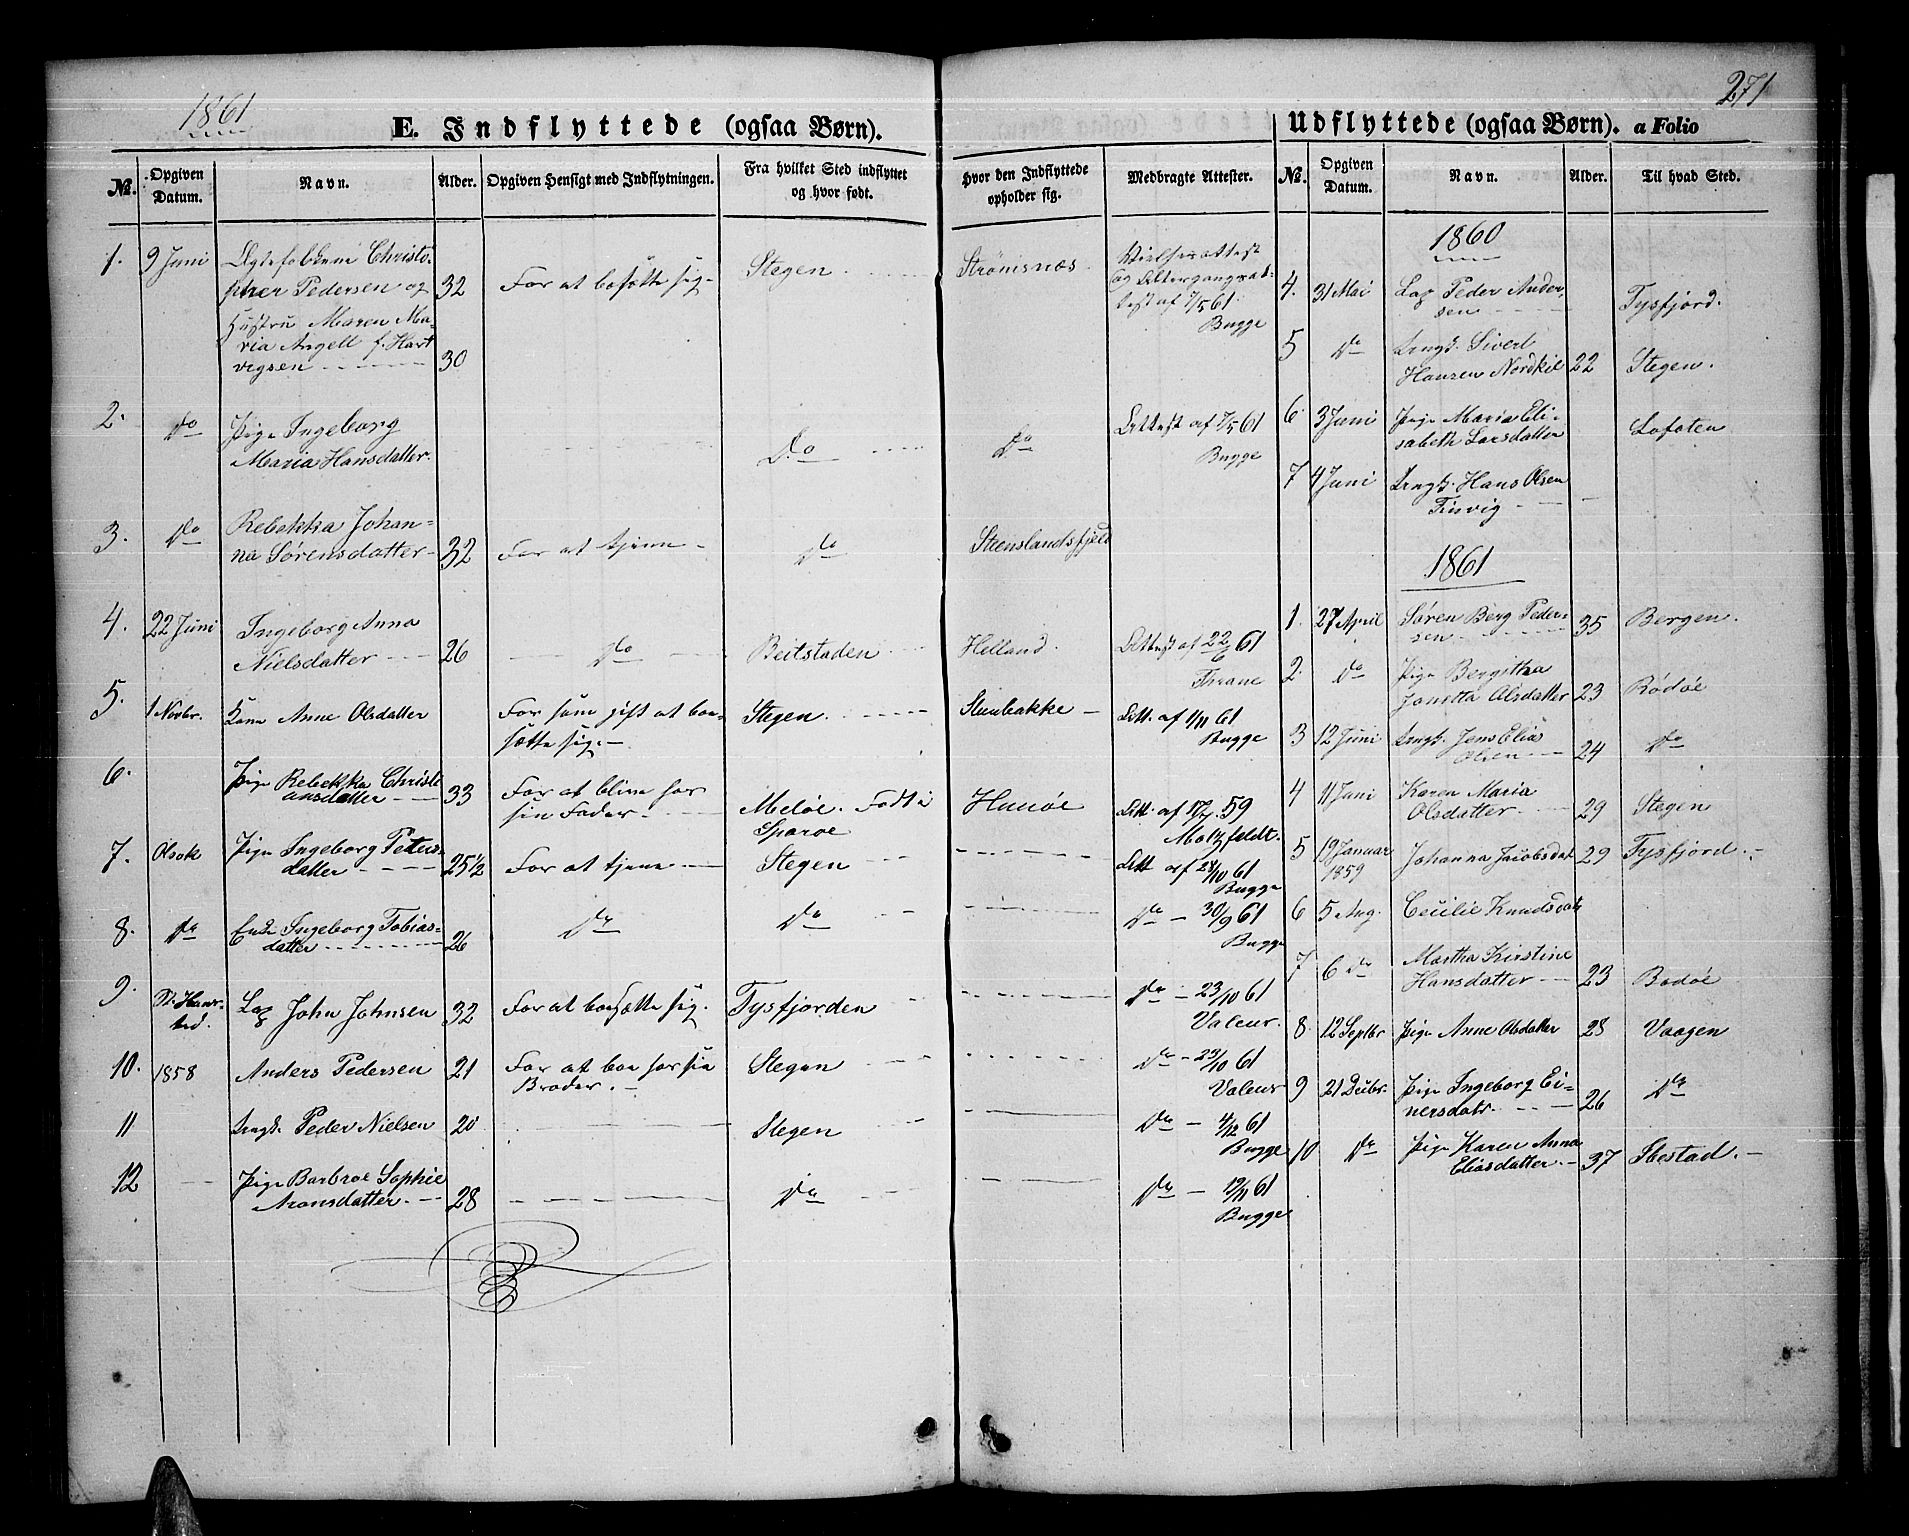 1861
271
E. Indflyttede (ogsaa Børn).
Udflyttede (ogsaa Børn). a Folio
№. Opgiven Datum. Navn. Alder. Opgiven Hensigt med Indflytningen. Fra hvilket Sted indflyttet og hvor født. Hvor den Indflyttede opholder sig. Medbragte Attester.
№. Opgiven Datum. Navn. Alder. Til hvad Sted.
1. 9 Juni Ægtefolkene Christo-
pher Pedersen og 32 For at bosætte sig Stegen Strømsnæs.
Hustru Maren Ma-
ria Angell f. Hart
vigsen 30
Vielsesattest
og Altergangsat-
test af 7/5 61.
Bugge
2. do Pige Ingeborg
Maria Hansdatter. Do Do Attest af 7/5 61
Bugge
3. do Rebekka Johan-
na Sørensdatter 32 For at tjene do Steenslandsfjeld
4. 22 Juni Ingeborg Anna
Nielsdatter 26 do Beitstaden Helland. Attest af 22/6 61
Thrane
5. 1 Novbr. Kone Anne Olsdatter For som gift at bo-
sætte sig. Stegen Steenbakke Att. af 1/11 61
Bugge
6. Pige Rebekka Christi
ansdatter 33 For at blive hos
sin Fader. Meløe. Født i
Sparoe Hunøe Att. af 17/7 59
Moltzfeldt.
7. Olsok Pige Ingeborg Peters-
datter 25½ For at tjene Stegen Att. af 28/10 61
Bugge
8. do Enke Ingeborg Tobias-
datter 26 do do do 30/9 61
Bugge
9. St. Hans-
tid. Log John Johnsen 32 For at bosætte sig. Tysfjorden do 23/10 61
Valeur.
10. 1858 Anders Pedersen 21 For at boe hos sin
Broder. Stegen do 23/10 61
Valeur
11 Ungk. Peder Nielsen 20 Stegen do 4/12 61
Bugge
12 Pige Barbroe Sophie
Aronsdatter. 28 do do 19/11 61
Bugge
1860
4. 31 Mai Log Peder Ander-
sen Tysfjord.
5 do Ungk. Sivert
Hansen Nordkil 22 Stegen.
6 3 Juni Pige Maria Eli-
sabeth Larsdatter Lofoten
7 4 Juni Ungk. Hans Olsen
Finvig
1861
1. 27 April Søren Berg Peder-
sen 35 Bergen.
2. do Pige Bergitha
Jonetta Olsdatter 23 Rødøe
3 12 Juni Ungk. Jens Elias
Olsen 24 do
4 11 Juni Karen Maria
Olsdatter 29 Stegen
5 19 Januar
1859 Johanna Jacobsdat 29 Tysfjord.
6 5 Aug. Cecilie Knudsdat
7 6 do Martha Kirstine
Hansdatter 23 Bodøe
8. 12 Septbr Pige Anne Olsdatter 28 Vaagen
9 21 Decbr. Pige Ingeborg Ei-
nersdatr. 26 do
10 do Pige Karen Anna
Eliasdatter. 37 Ibestad.